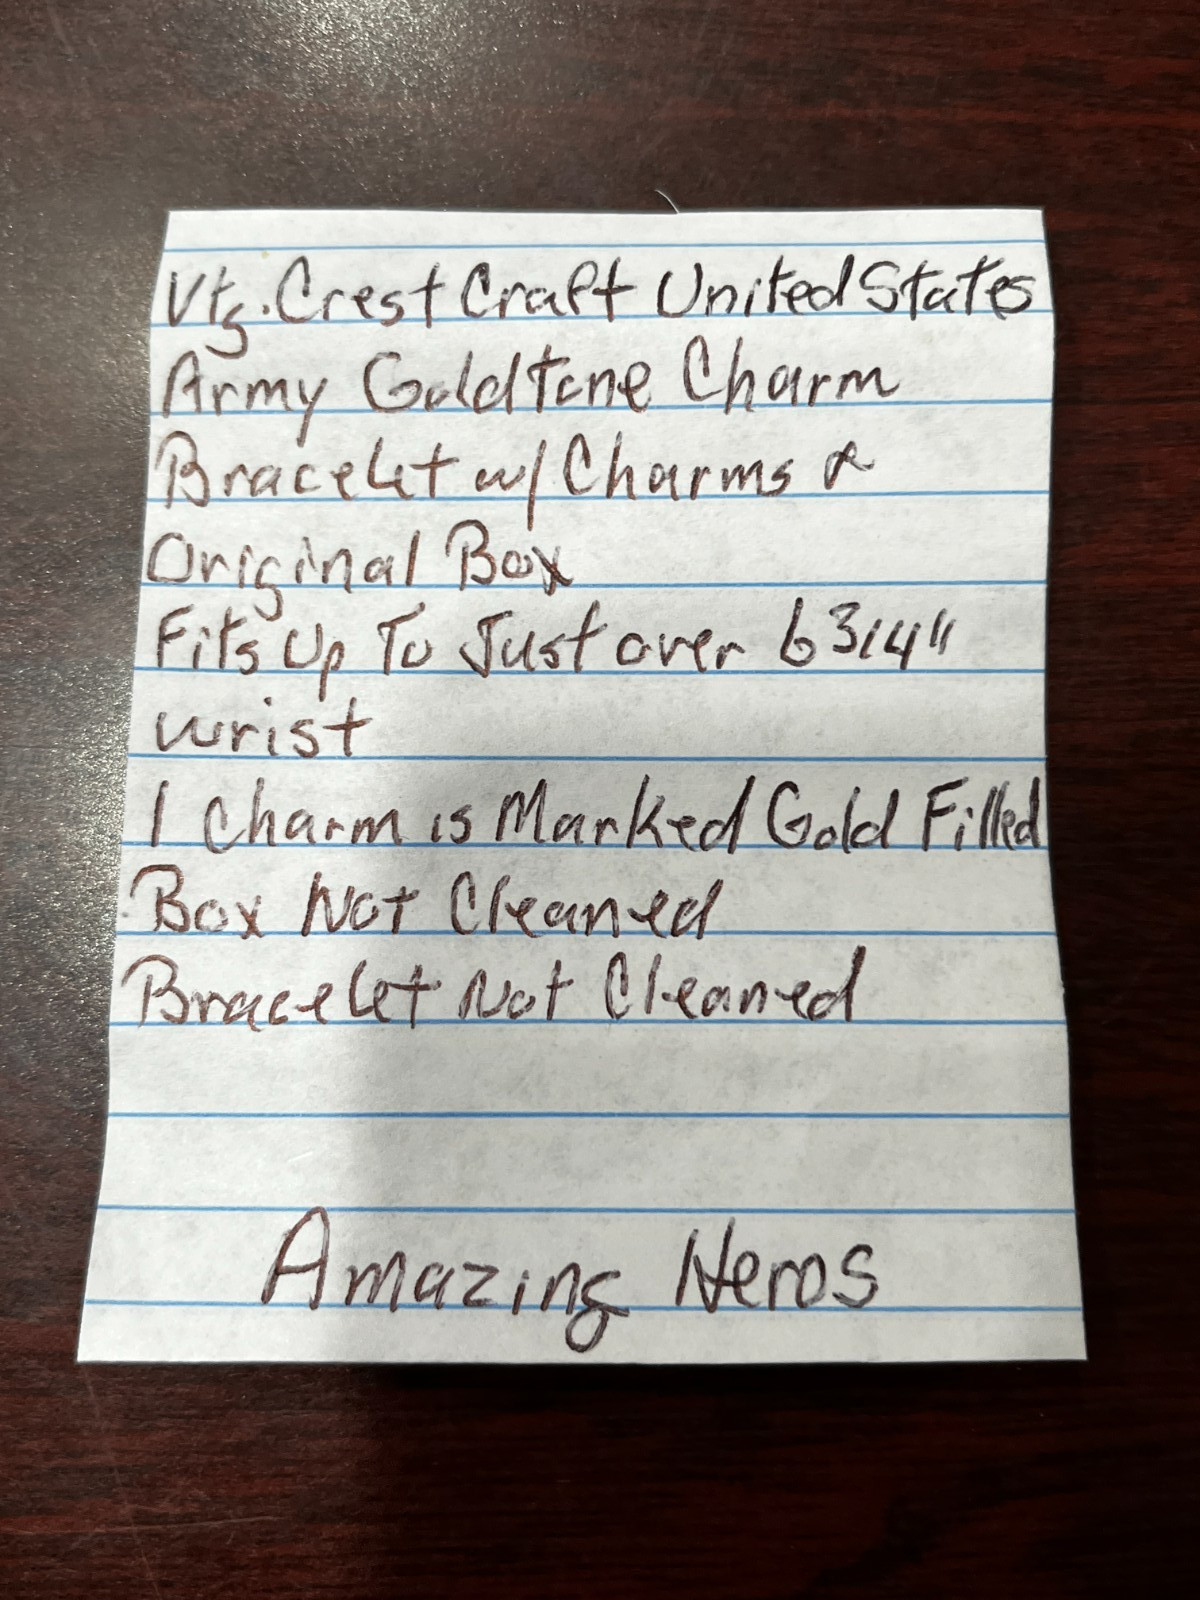 Vtg. Crest Craft United States
Army Goldtone Charm
Bracelet w/ Charms &
Original Box
Fits Up To Just over 6 3/4"
wrist
1 Charm is Marked Gold Filled
Box Not Cleaned
Bracelet Not Cleaned
Amazing Heros